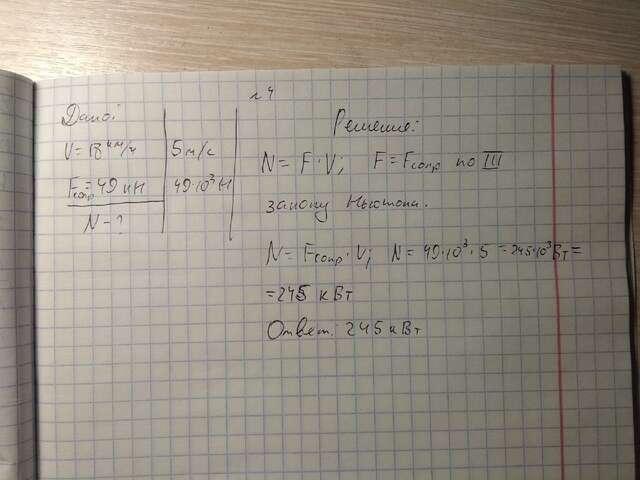 №4
Дано:
V = 18 км/ч | 5 м/с
Fсопр = 49 кН | 49·10³ Н
N - ?
Решение:
N = F·V; F = Fсопр по III
закону Ньютона.
N = Fсопр·V; N = 49·10³·5 = 245·10³ Вт =
= 245 кВт
Ответ: 245 кВт